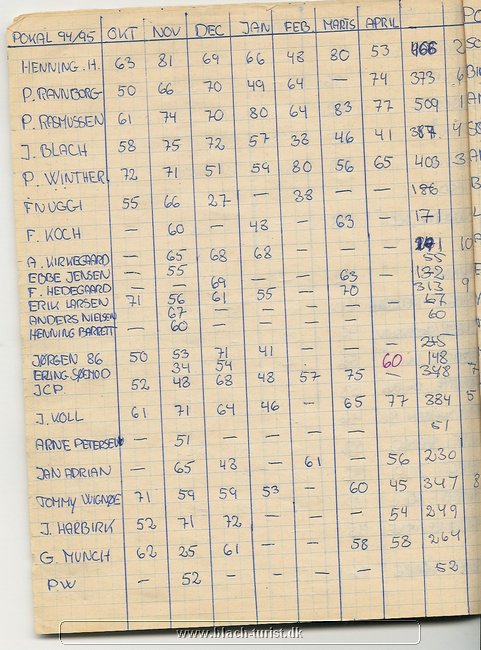 POKAL 94/95 OKT NOV DEC JAN FEB MARTS APRIL
HENNING.H. 63 81 69 66 48 80 53 2
P. RANNBORG 50 66 70 49 64 — 74 373 6
P. RASMUSSEN 61 74 70 80 64 83 77 509 1
J. BLACH 58 75 72 57 38 46 41 4
P. WINTHER 72 71 51 59 80 56 65 403 3
FNUGGI 55 66 27 — 38 — — 186
F. KOCH — 60 — 48 — 63 — 171
A. KIRKEGAARD — 65 68 68 — — — 10
EBBE JENSEN — 55 — — — — — 55
F. HEDEGAARD — — 69 — — 63 — 132
ERIK LARSEN 71 56 61 55 — 70 — 313 9
ANDERS NIELSEN — 67 — — — — — 67
HENNING BARRETT — 60 — — — — — 60
JØRGEN 86 50 53 71 41 — — — 215
ERLING 34 54 60 148
JCP 52 48 68 48 57 75 — 348 7
J. KOLL 61 71 64 46 — 65 77 384 5
ARNE PETERSEN — 51 — — — — — 51
JAN ADRIAN — 65 48 — 61 — 56 230
TOMMY 71 59 59 53 — 60 45 347 8
J. HARBIRK 52 71 72 — — — 54 249
G. MUNCH 62 25 61 — — 58 58 264
PW — 52 — — — — — 52
www.blach-turist.dk